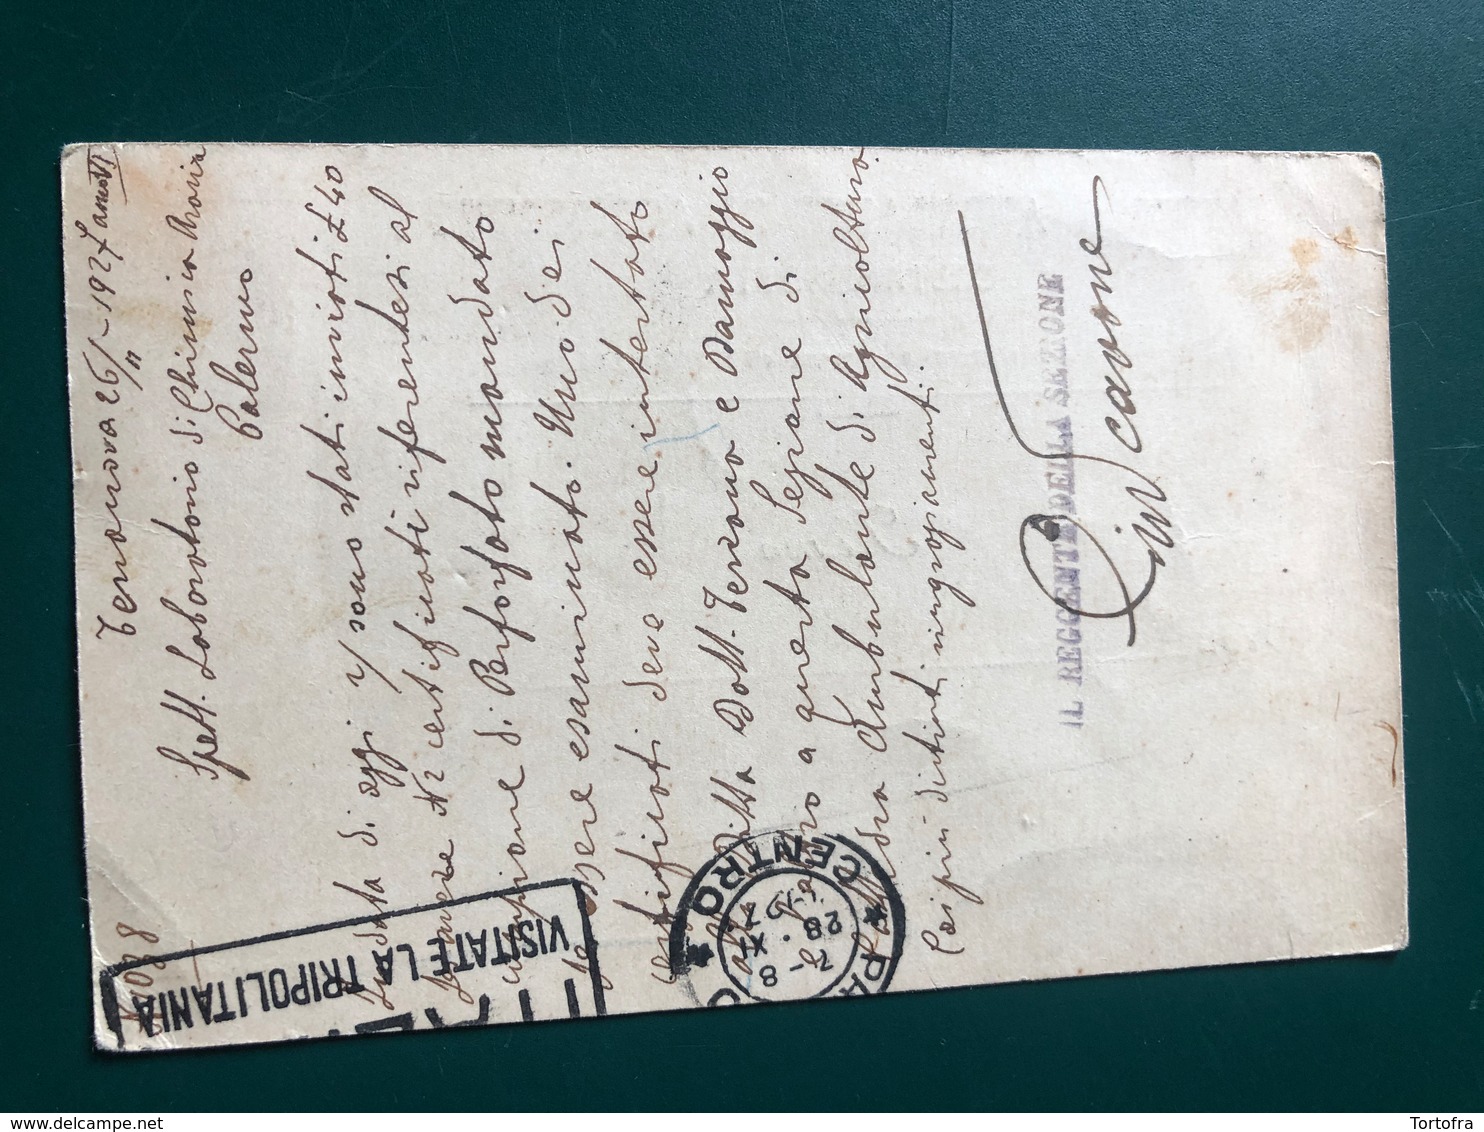 N. 1088
Terranova 26/11 - 1927 anno VI
Spett. Laboratorio di Chimica Agraria
Palermo
In data di oggi si sono stati inviati £ 40
per certificati riferentesi al
di Perfosfato mandato
essere esaminato. Uno dei
certificati deve essere intestato
alla Ditta Dott. Terzano e Damaggio
a questa Sezione di
Ambulante di Agricoltura
Coi più distinti ringraziamenti.
IL REGGENTE DELLA SEZIONE
Scavone
VISITATE LA TRIPOLITANIA
PALERMO CENTRO
7-8
28. XI
1927
Tortofra